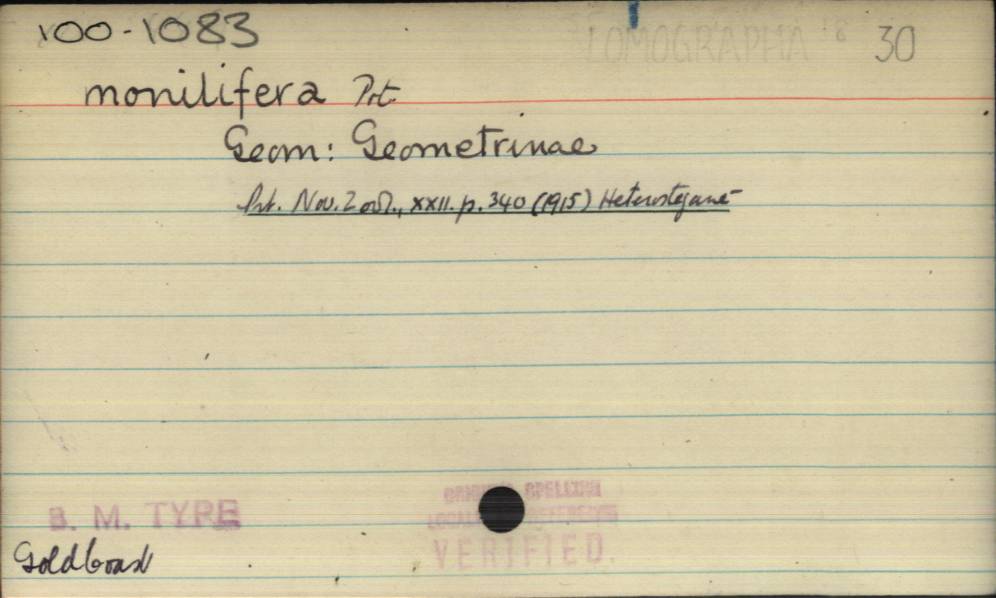 100-1083
LOMOGRAPHA 18 30
monilifera Prt.
Geom: Geometrinae
Prt. Nov. Zool., XXII. p. 340 (1915) Heterostegane
B. M. TYPE
ORIGINAL SPELLING
VERIFIED.
Goldcoast